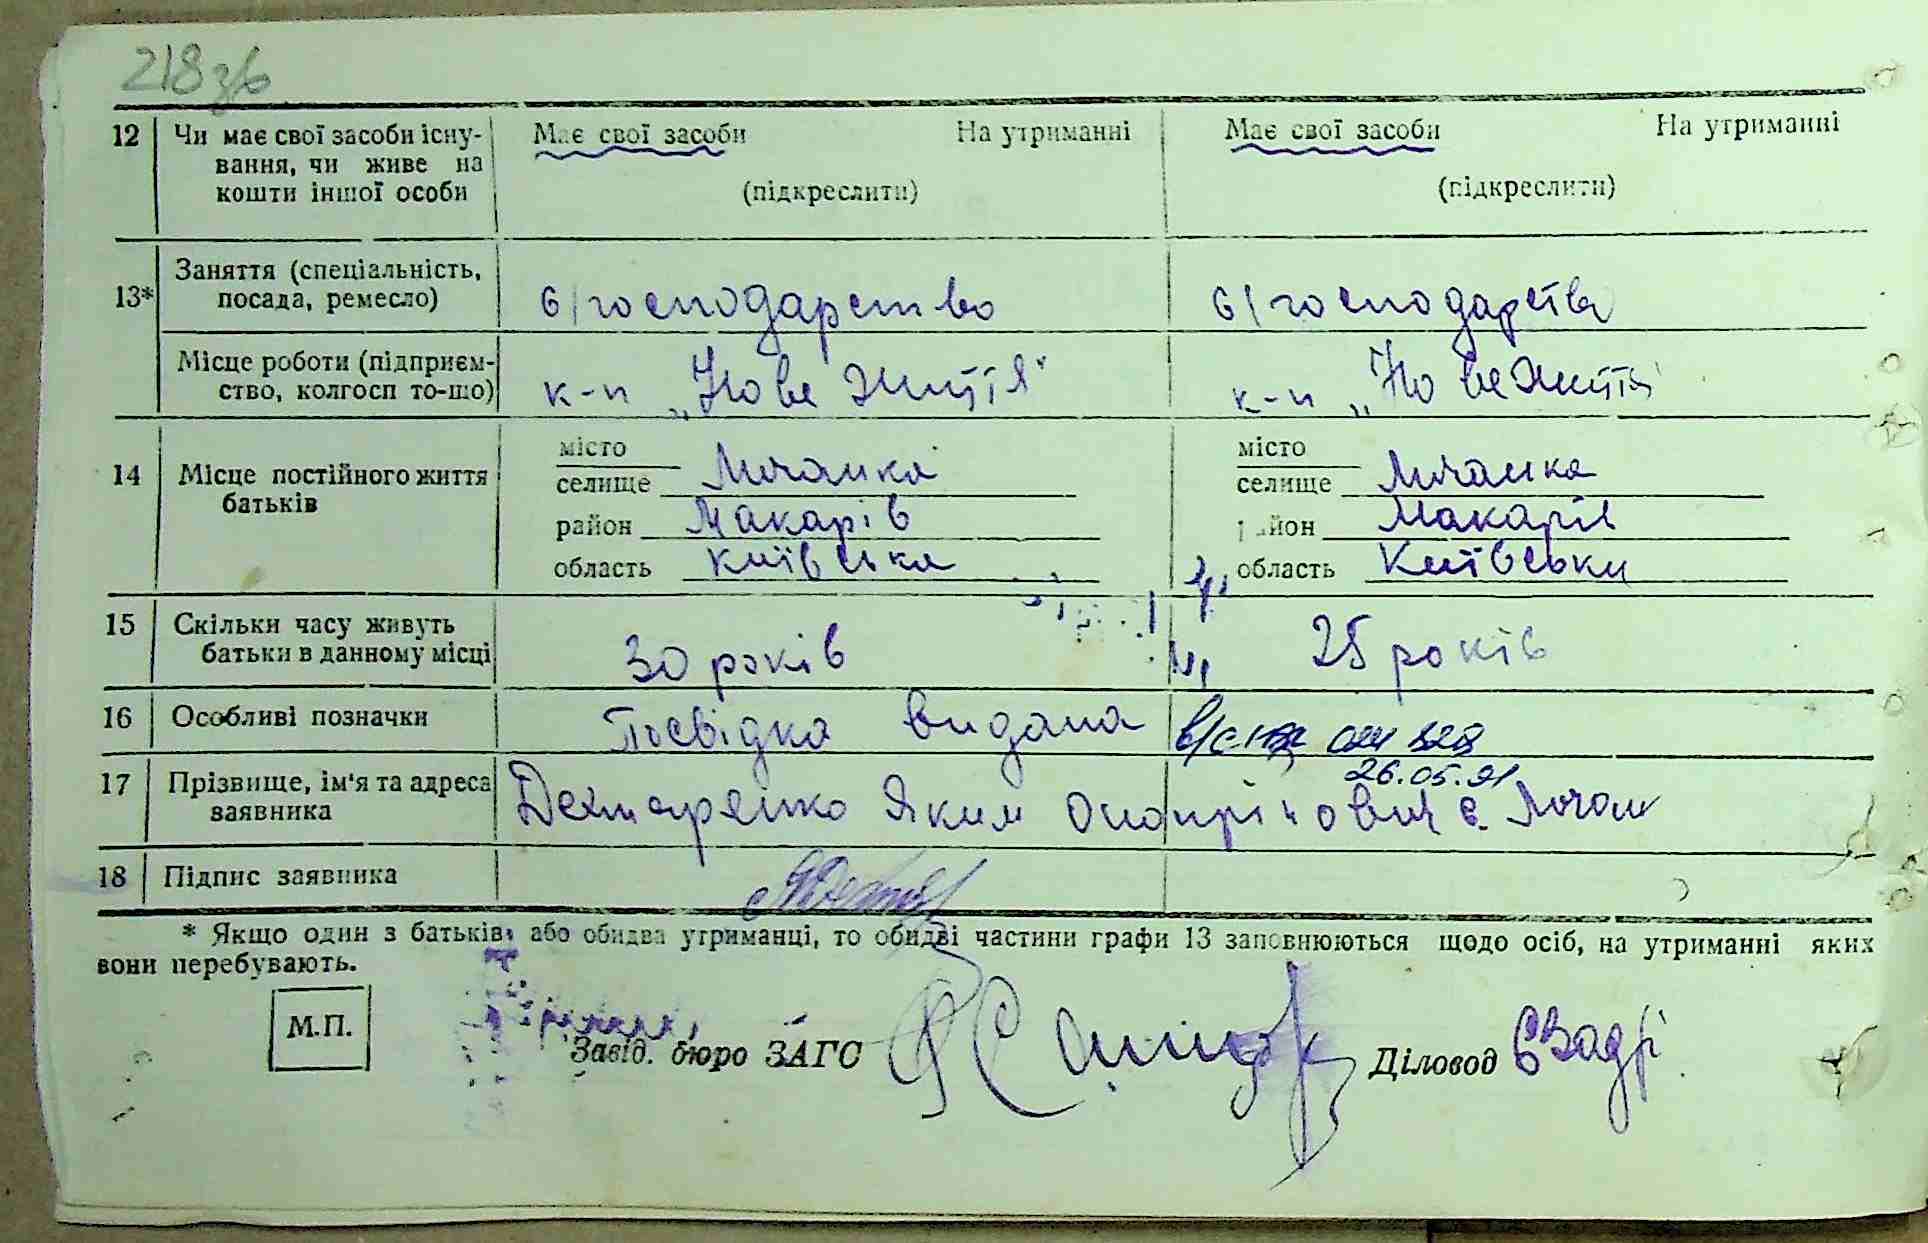 218 зв
12 Чи має свої засоби існу- Має свої засоби На утриманні Має свої засоби На утриманні
вання, чи живе на
кошти іншої особи (підкреслити) (підкреслити)
Заняття (спеціальність,
13* посада, ремесло) с/господарство с/господарство
Місце роботи (підприєм-
ство, колгосп то-що) к-п „Нове Життя" к-п „Нове Життя
місто місто
14 Місце постійного життя селище Мотыжка селище Мотыжка
батьків район Макарів район Макарів
область Київська область Київська
15 Скільки часу живуть
батьки в данному місці 30 років 25 років
16 Особливі позначки Посвідка видана
26.05.91
17 Прізвище, ім'я та адреса
заявника Дехтяренко Яким с.
18 Підпис заявника
* Якщо один з батьків, або обидва утриманці, то обидві частини графи 13 заповнюються щодо осіб, на утриманні яких
вони перебувають.
М.П.
Завід. бюро ЗАГС Діловод